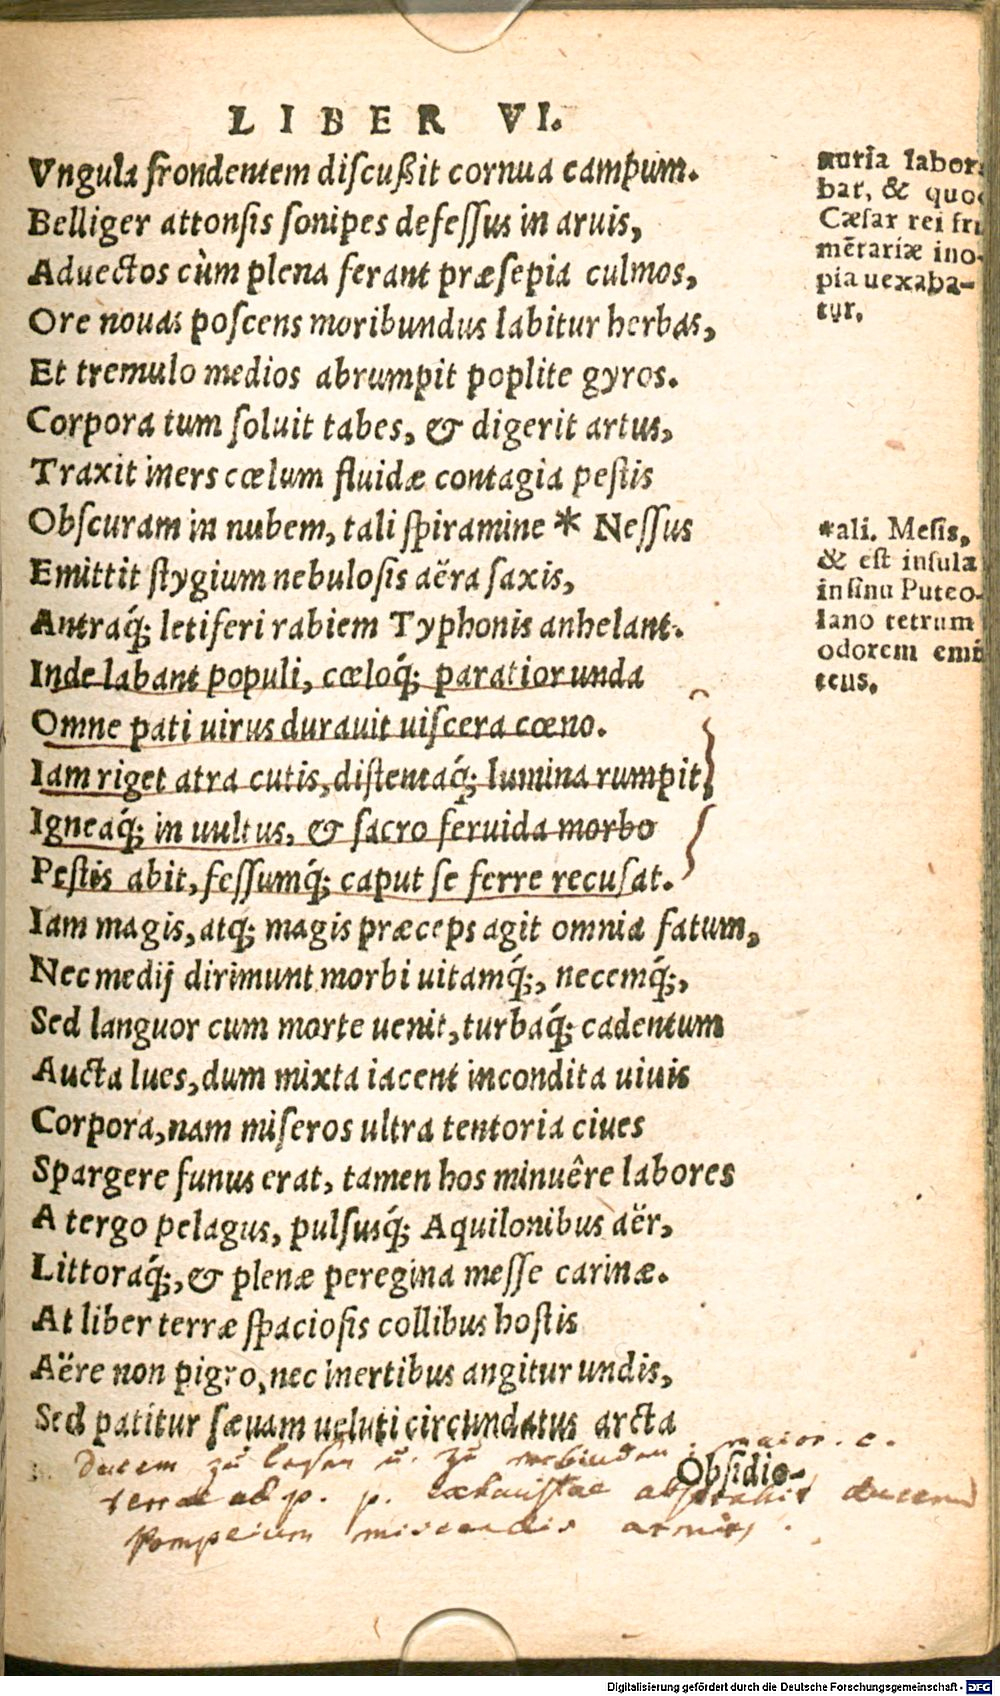 LIBER VI.
Vngula frondentem discußit cornua campum.
Belliger attonsis sonipes defessus in aruis,
Aduectos cùm plena ferant præsepia culmos,
Ore nouas poscens moribundus labitur herbas,
Et tremulo medios abrumpit poplite gyros.
Corpora tum soluit tabes, & digerit artus,
Traxit iners cœlum fluidæ contagia pestis
Obscuram in nubem, tali spiramine * Nessus
Emittit stygium nebulosis aëra saxis,
Antraq́; letiferi rabiem Typhonis anhelant.
Inde labant populi, cœloq́; paratior unda
Omne pati uirus durauit uiscera cœno.
Iam riget atra cutis, distentaq́; lumina rumpit,
Igneaq́; in uultus, & sacro feruida morbo
Pestis abit, fessumq́; caput se ferre recusat.
Iam magis, atq; magis præceps agit omnia fatum,
Nec medij dirimunt morbi uitamq́;, necemq́;,
Sed languor cum morte uenit, turbaq́; cadentum
Aucta lues, dum mixta iacent incondita uiuis
Corpora, nam miseros ultra tentoria ciues
Spargere funus erat, tamen hos minuêre labores
A tergo pelagus, pulsusq́; Aquilonibus aër,
Littoraq́;, & plenæ peregrina messe carinæ.
At liber terræ spaciosis collibus hostis
Aëre non pigro, nec inertibus angitur undis,
Sed patitur sæuam ueluti circundatus arcta
Obsidio-
nuria labor
bat, & quo
Cæsar rei fru
mētariæ ino-
pia uexaba-
tur.
*ali. Mesis,
& est insula
in sinu Puteo-
lano tetrum
odorem emit
teus.
Ducem zu lesen u. zu verbinden maior. c.
terrae ad p. p. exhaustae ducem
Pompeium armis.
Digitalisierung gefördert durch die Deutsche Forschungsgemeinschaft - DFG